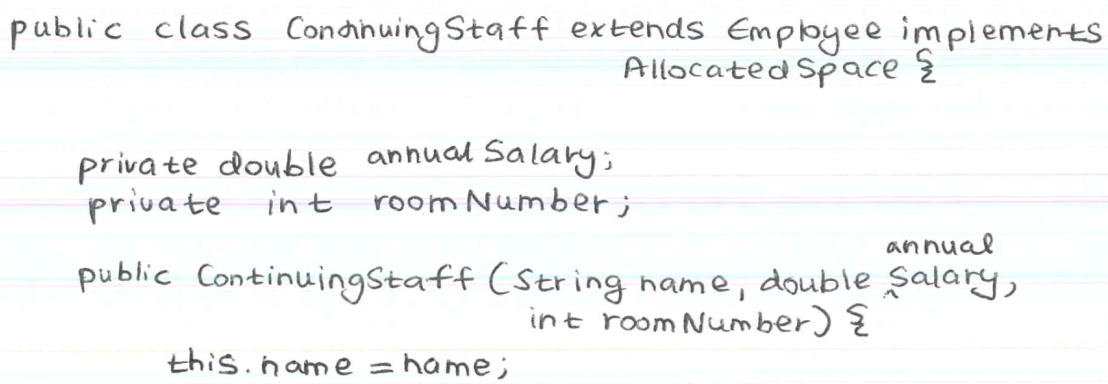 public class ContinuingStaff extends Employee implements
AllocatedSpace {
private double annualSalary;
private int roomNumber;
public ContinuingStaff (String name, double annual Salary,
int roomNumber) {
this.name = name;